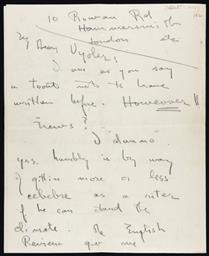 10 Rowan Rd.
Hammersmith
London
My dear Vyoler,
I am as you say
a toothi not to have
written before. However!!
News?
I dunno.
yes. humbly is by way
of gettin more or less
celebre as a riter
if he can stand the
climate. The English
Review give me